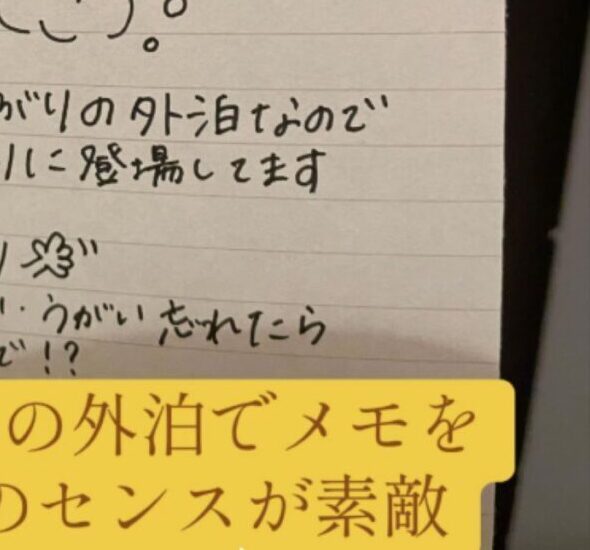 がりの外泊なので
ルに登場してます
・うがい 忘れたら
で!?
の外泊でメモを
のセンスが素敵